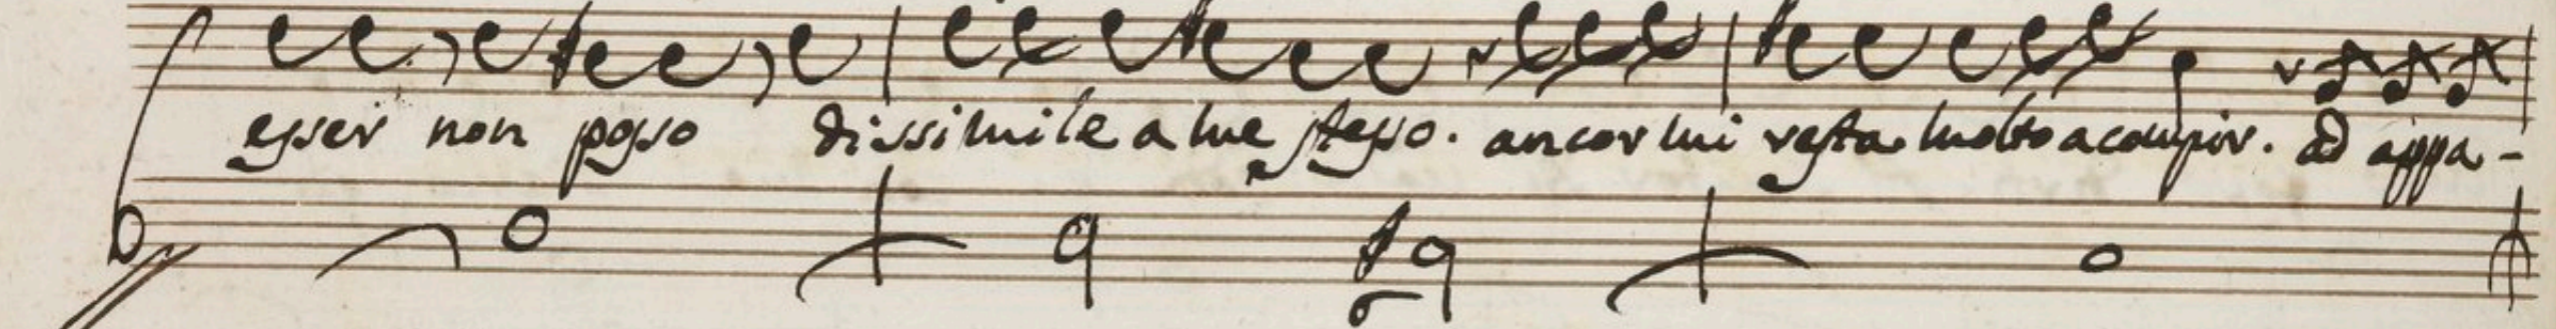 esser non posso dissimile a me stesso. ancor mi resta molto a compir. ad appa-